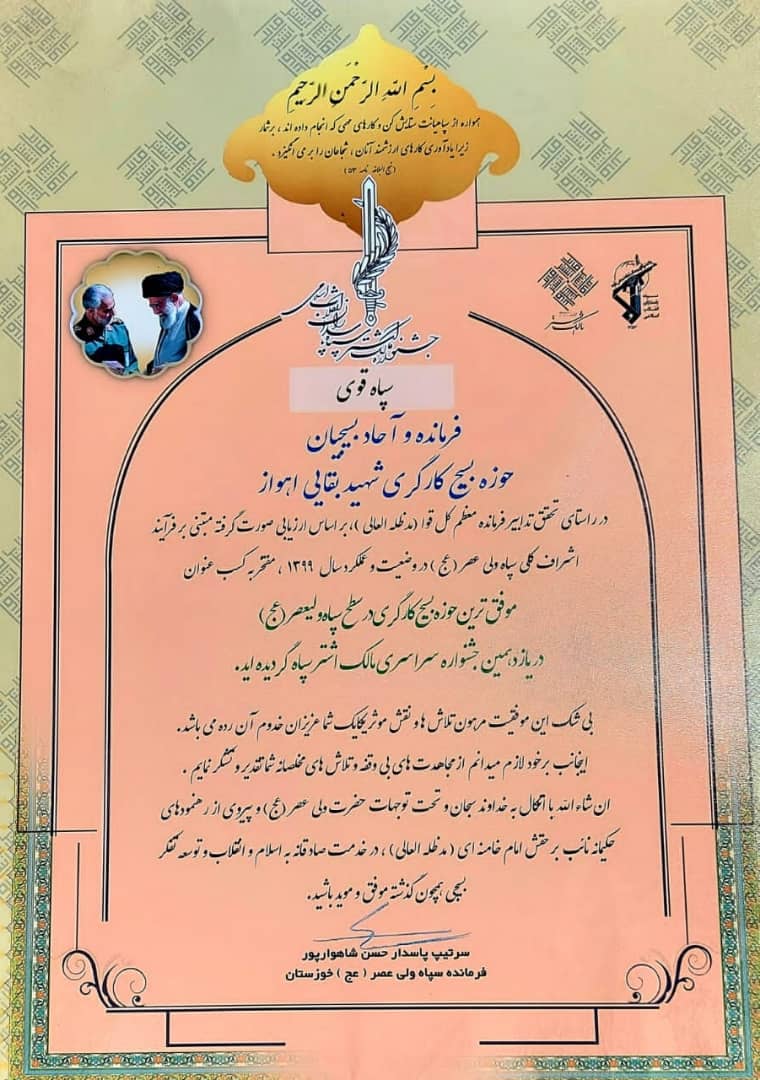 بِسْمِ اللهِ الرَّحْمَنِ الرَّحِيمِ
همواره از سپاهیانت ستایش کن و کارهای مهمی که انجام داده اند ، برشمار
زیرا یادآوری کارهای ارزشمند آنان ، شجاعان را برمی انگیزد .
(نهج البلاغه نامه ۵۳)
جشنواره مالک اشتر سپاه پاسداران انقلاب اسلامی
مالک اشتر
سپاه
پاسداران
انقلاب
اسلامی
سپاه قوی
فرمانده و آحاد بسیجیان
حوزه بسیج کارگری شهید بقایی اهواز
در راستای تحقق تدابیر فرمانده معظم کل قوا (مدظله العالی )، بر اساس ارزیابی صورت گرفته مبتنی بر فرآیند
اشراف کلی سپاه ولی عصر (عج ) در وضعیت و عملکرد سال ۱۳۹۹ ، مفتخر به کسب عنوان
موفق ترین حوزه بسیج کارگری در سطح سپاه ولیعصر (عج)
در یازدهمین جشنواره سراسری مالک اشتر سپاه گردیده اید.
بی شک این موفقیت مرهون تلاش ها و نقش موثر یکایک شما عزیزان خدوم آن رده می باشد .
اینجانب بر خود لازم میدانم از مجاهدت های بی وقفه و تلاش های مخلصانه شما تقدیر و تشکر نمایم .
ان شاء الله با اتکال به خداوند سبحان و تحت توجهات حضرت ولی عصر (عج) و پیروی از رهنمودهای
حکیمانه نائب برحقش امام خامنه ای ( مدظله العالی ) ، در خدمت صادقانه به اسلام و انقلاب و توسعه تفکر
بسیجی همچون گذشته موفق و موید باشید.
سرتیپ پاسدار حسن شاهوارپور
فرمانده سپاه ولی عصر ( عج ) خوزستان